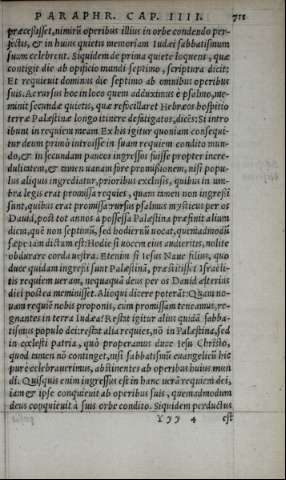 PARAPHR. CAP. IIII. 711
præcessisset, nimirũ operibus illius in orbe condendo per-
fectis, & in huius quietis memoriam Iudæi sabbatismum
suum celebrent. Siquidem de prima quiete loquens, quæ
contigit die ab opificio mundi septimo, scriptura dicit:
Et requieuit dominus die septimo ab omnibus operibus
suis. At rursus hoc in loco quem adduximus è psalmo, me-
minit secundæ quietis, quæ refocillaret Hebræos hospitio
terræ Palæstinæ longo itinere defatigatos, dicẽs: Si intro
ibunt in requiem meam. Ex his igitur quoniam consequi-
tur deum primò introisse in suam requiem condito mun-
do, & in secundam paucos ingressos fuisse propter incre-
dulitatem, & tamen uanam fore promissionem, nisi popu-
lus aliquis ingrediatur, prioribus exclusis, quibus in um-
bra legis erat promissa requies, quam tamen non ingressi
sunt, quibus erat promissa rursus psalmus mysticus per os
Dauid, post tot annos à possessa Palæstina præfinit alium
diem, quẽ non septimũ, sed hodiernũ uocat, quemadmodũ
sæpe iam dictum est: Hodie si uocem eius audieritis, nolite
obdurare corda uestra. Etenim si Iesus Naue filius, quo
duce quidam ingressi sunt Palæstinã, præstitisset Israëli-
tis requiem ueram, nequaquã deus per os Dauid alterius
diei postea meminisset. Alioqui dicere poterãt: Quam no-
uam requiẽ nobis proponis, cum promissam teneamus, re-
gnantes in terra Iudæa? Restat igitur alius quidã sabba-
tismus populo dei: restat alia requies, nõ in Palæstina, sed
in cœlesti patria, quò properamus duce Iesu Christo,
quod tamen nõ continget, nisi sabbatismũ euangelicũ hic
pure celebrauerimus, abstinentes ab operibus huius mun
di. Quisquis enim ingressus est in hanc uerã requiem dei,
iam & ipse conquieuit ab operibus suis, quemadmodum
deus conquieuit à suis orbe condito. Siquidem perductus
Yyy 4 est